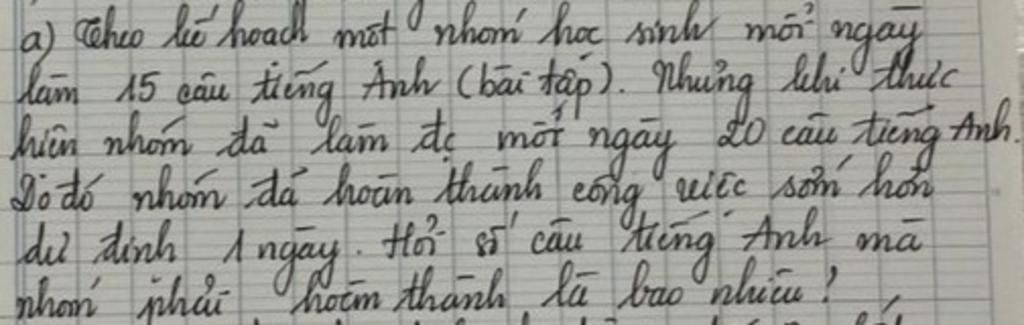 a) Theo kế hoạch một nhóm học sinh mỗi ngày
làm 15 câu tiếng Anh (bài tập). Nhưng khi thực
hiện nhóm đã làm đc mỗi ngày 20 câu tiếng Anh.
Do đó nhóm đã hoàn thành công việc sớm hơn
dự định 1 ngày. Hỏi số câu tiếng Anh mà
nhóm phải hoàn thành là bao nhiêu?